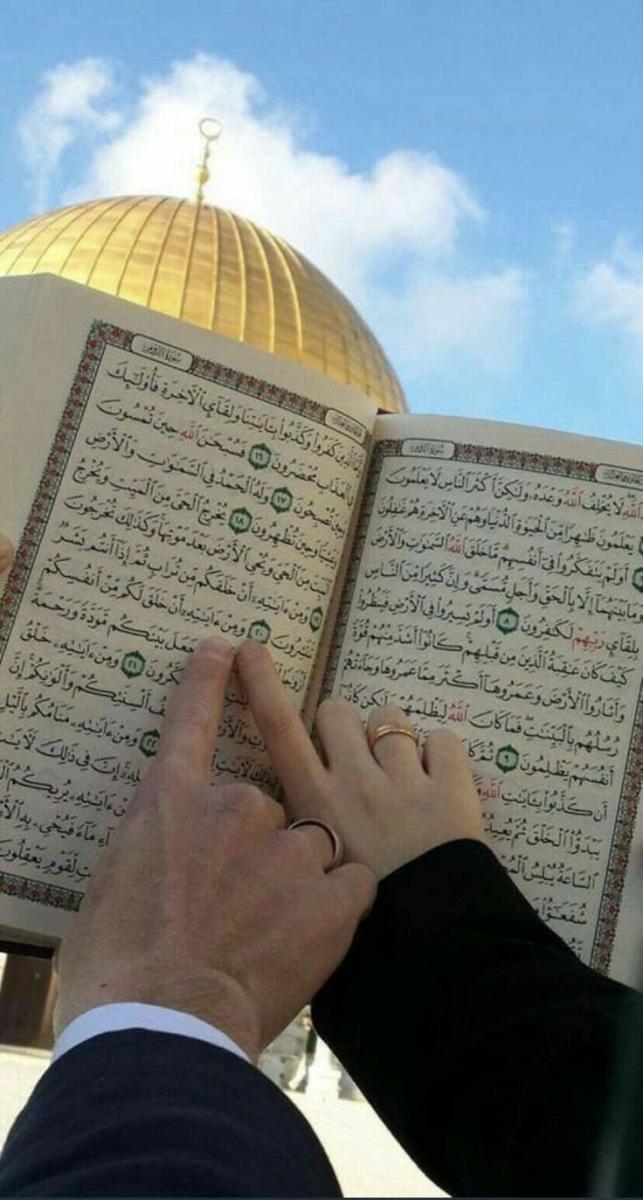 سُورَةُ الرُّومِ
اللَّهِ لَا يُخْلِفُ اللَّهُ وَعْدَهُ وَلَٰكِنَّ أَكْثَرَ النَّاسِ لَا يَعْلَمُونَ
يَعْلَمُونَ ظَٰهِرًا مِّنَ الْحَيَوٰةِ الدُّنْيَا وَهُمْ عَنِ الْآخِرَةِ هُمْ غَٰفِلُونَ
أَوَلَمْ يَتَفَكَّرُوا فِي أَنفُسِهِم مَّا خَلَقَ اللَّهُ السَّمَٰوَٰتِ وَالْأَرْضَ
وَمَا بَيْنَهُمَا إِلَّا بِالْحَقِّ وَأَجَلٍ مُّسَمًّى وَإِنَّ كَثِيرًا مِّنَ النَّاسِ
بِلِقَآئِ رَبِّهِمْ لَكَٰفِرُونَ ٨ أَوَلَمْ يَسِيرُوا فِي الْأَرْضِ فَيَنظُرُوا
كَيْفَ كَانَ عَٰقِبَةُ الَّذِينَ مِن قَبْلِهِمْ كَانُوا أَشَدَّ مِنْهُمْ قُوَّةً
وَأَثَارُوا الْأَرْضَ وَعَمَرُوهَا أَكْثَرَ مِمَّا عَمَرُوهَا وَجَآءَتْهُمْ
رُسُلُهُم بِالْبَيِّنَٰتِ فَمَا كَانَ اللَّهُ لِيَظْلِمَهُمْ وَلَٰكِن كَانُوا
أَنفُسَهُمْ يَظْلِمُونَ ٩ ثُمَّ
أَن كَذَّبُوا بِـَٔايَٰتِ اللَّهِ
يَبْدَؤُا الْخَلْقَ ثُمَّ يُعِيدُهُ
السَّاعَةُ يُبْلِسُ
سُورَةُ الرُّومِ
الَّذِينَ كَفَرُوا وَكَذَّبُوا بِـَٔايَٰتِنَا وَلِقَآئِ الْآخِرَةِ فَأُولَٰٓئِكَ
الْعَذَابِ مُحْضَرُونَ ١٦ فَسُبْحَٰنَ اللَّهِ حِينَ تُمْسُونَ
وَحِينَ تُصْبِحُونَ ١٧ وَلَهُ الْحَمْدُ فِي السَّمَٰوَٰتِ وَالْأَرْضِ
وَعَشِيًّا وَحِينَ تُظْهِرُونَ ١٨ يُخْرِجُ الْحَيَّ مِنَ الْمَيِّتِ وَيُخْرِجُ
الْمَيِّتَ مِنَ الْحَيِّ وَيُحْيِ الْأَرْضَ بَعْدَ مَوْتِهَا وَكَذَٰلِكَ تُخْرَجُونَ
١٩ وَمِنْ ءَايَٰتِهِ أَنْ خَلَقَكُم مِّن تُرَابٍ ثُمَّ إِذَا أَنتُم بَشَرٌ
تَنتَشِرُونَ ٢٠ وَمِنْ ءَايَٰتِهِ أَنْ خَلَقَ لَكُم مِّنْ أَنفُسِكُمْ
أَزْوَٰجًا وَجَعَلَ بَيْنَكُم مَّوَدَّةً وَرَحْمَةً
٢١ وَمِنْ ءَايَٰتِهِ خَلْقُ
أَلْسِنَتِكُمْ وَأَلْوَٰنِكُمْ إِنَّ
٢٢ وَمِنْ ءَايَٰتِهِ مَنَامُكُم بِالَّيْلِ
إِنَّ فِي ذَٰلِكَ لَـَٔايَٰتٍ
ءَايَٰتِهِ يُرِيكُمُ
مَآءً فَيُحْيِ بِهِ
لِّقَوْمٍ يَعْقِلُونَ